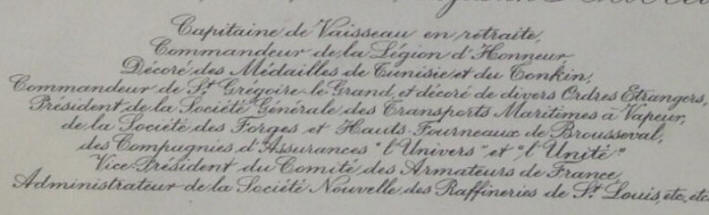 Capitaine de Vaisseau en retraite,
Commandeur de la Légion d'Honneur
Décoré des Médailles de Tunisie et du Tonkin,
Commandeur de St Grégoire-le-Grand, et décoré de divers Ordres Etrangers,
Président de la Société Générale des Transports Maritimes à Vapeur,
de la Société des Forges et Hauts-Fourneaux de Brousseval,
des Compagnies d'Assurances "l'Univers" et "l'Unité"
Vice-Président du Comité des Armateurs de France,
Administrateur de la Société Nouvelle des Raffineries de St Louis, etc, etc.